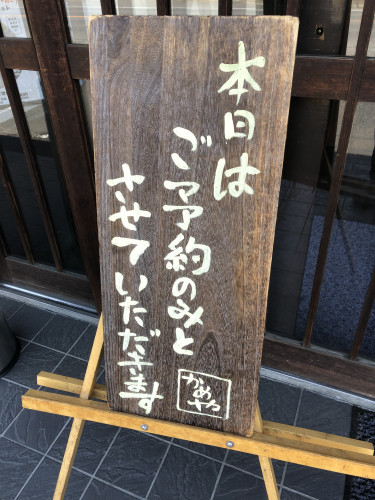 本日は
ご予約のみと
させていただきます
かめや